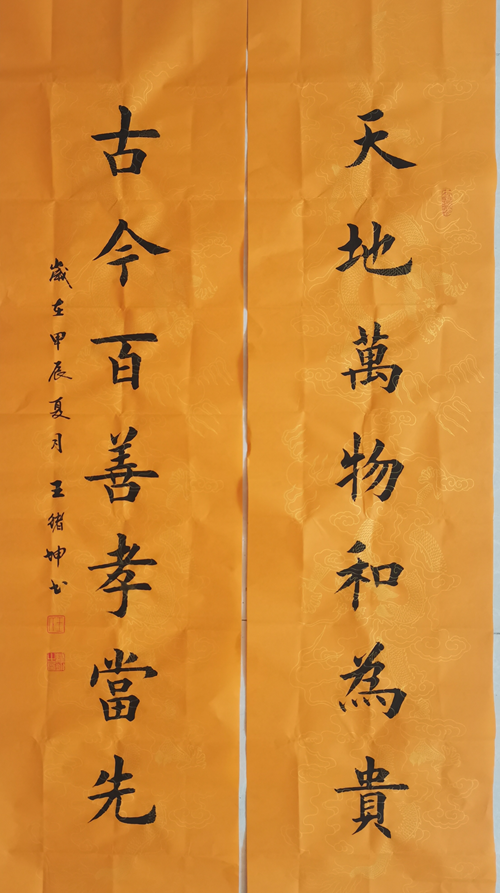 天地萬物和為貴
古今百善孝當先
歲在甲辰夏月王緒坤书